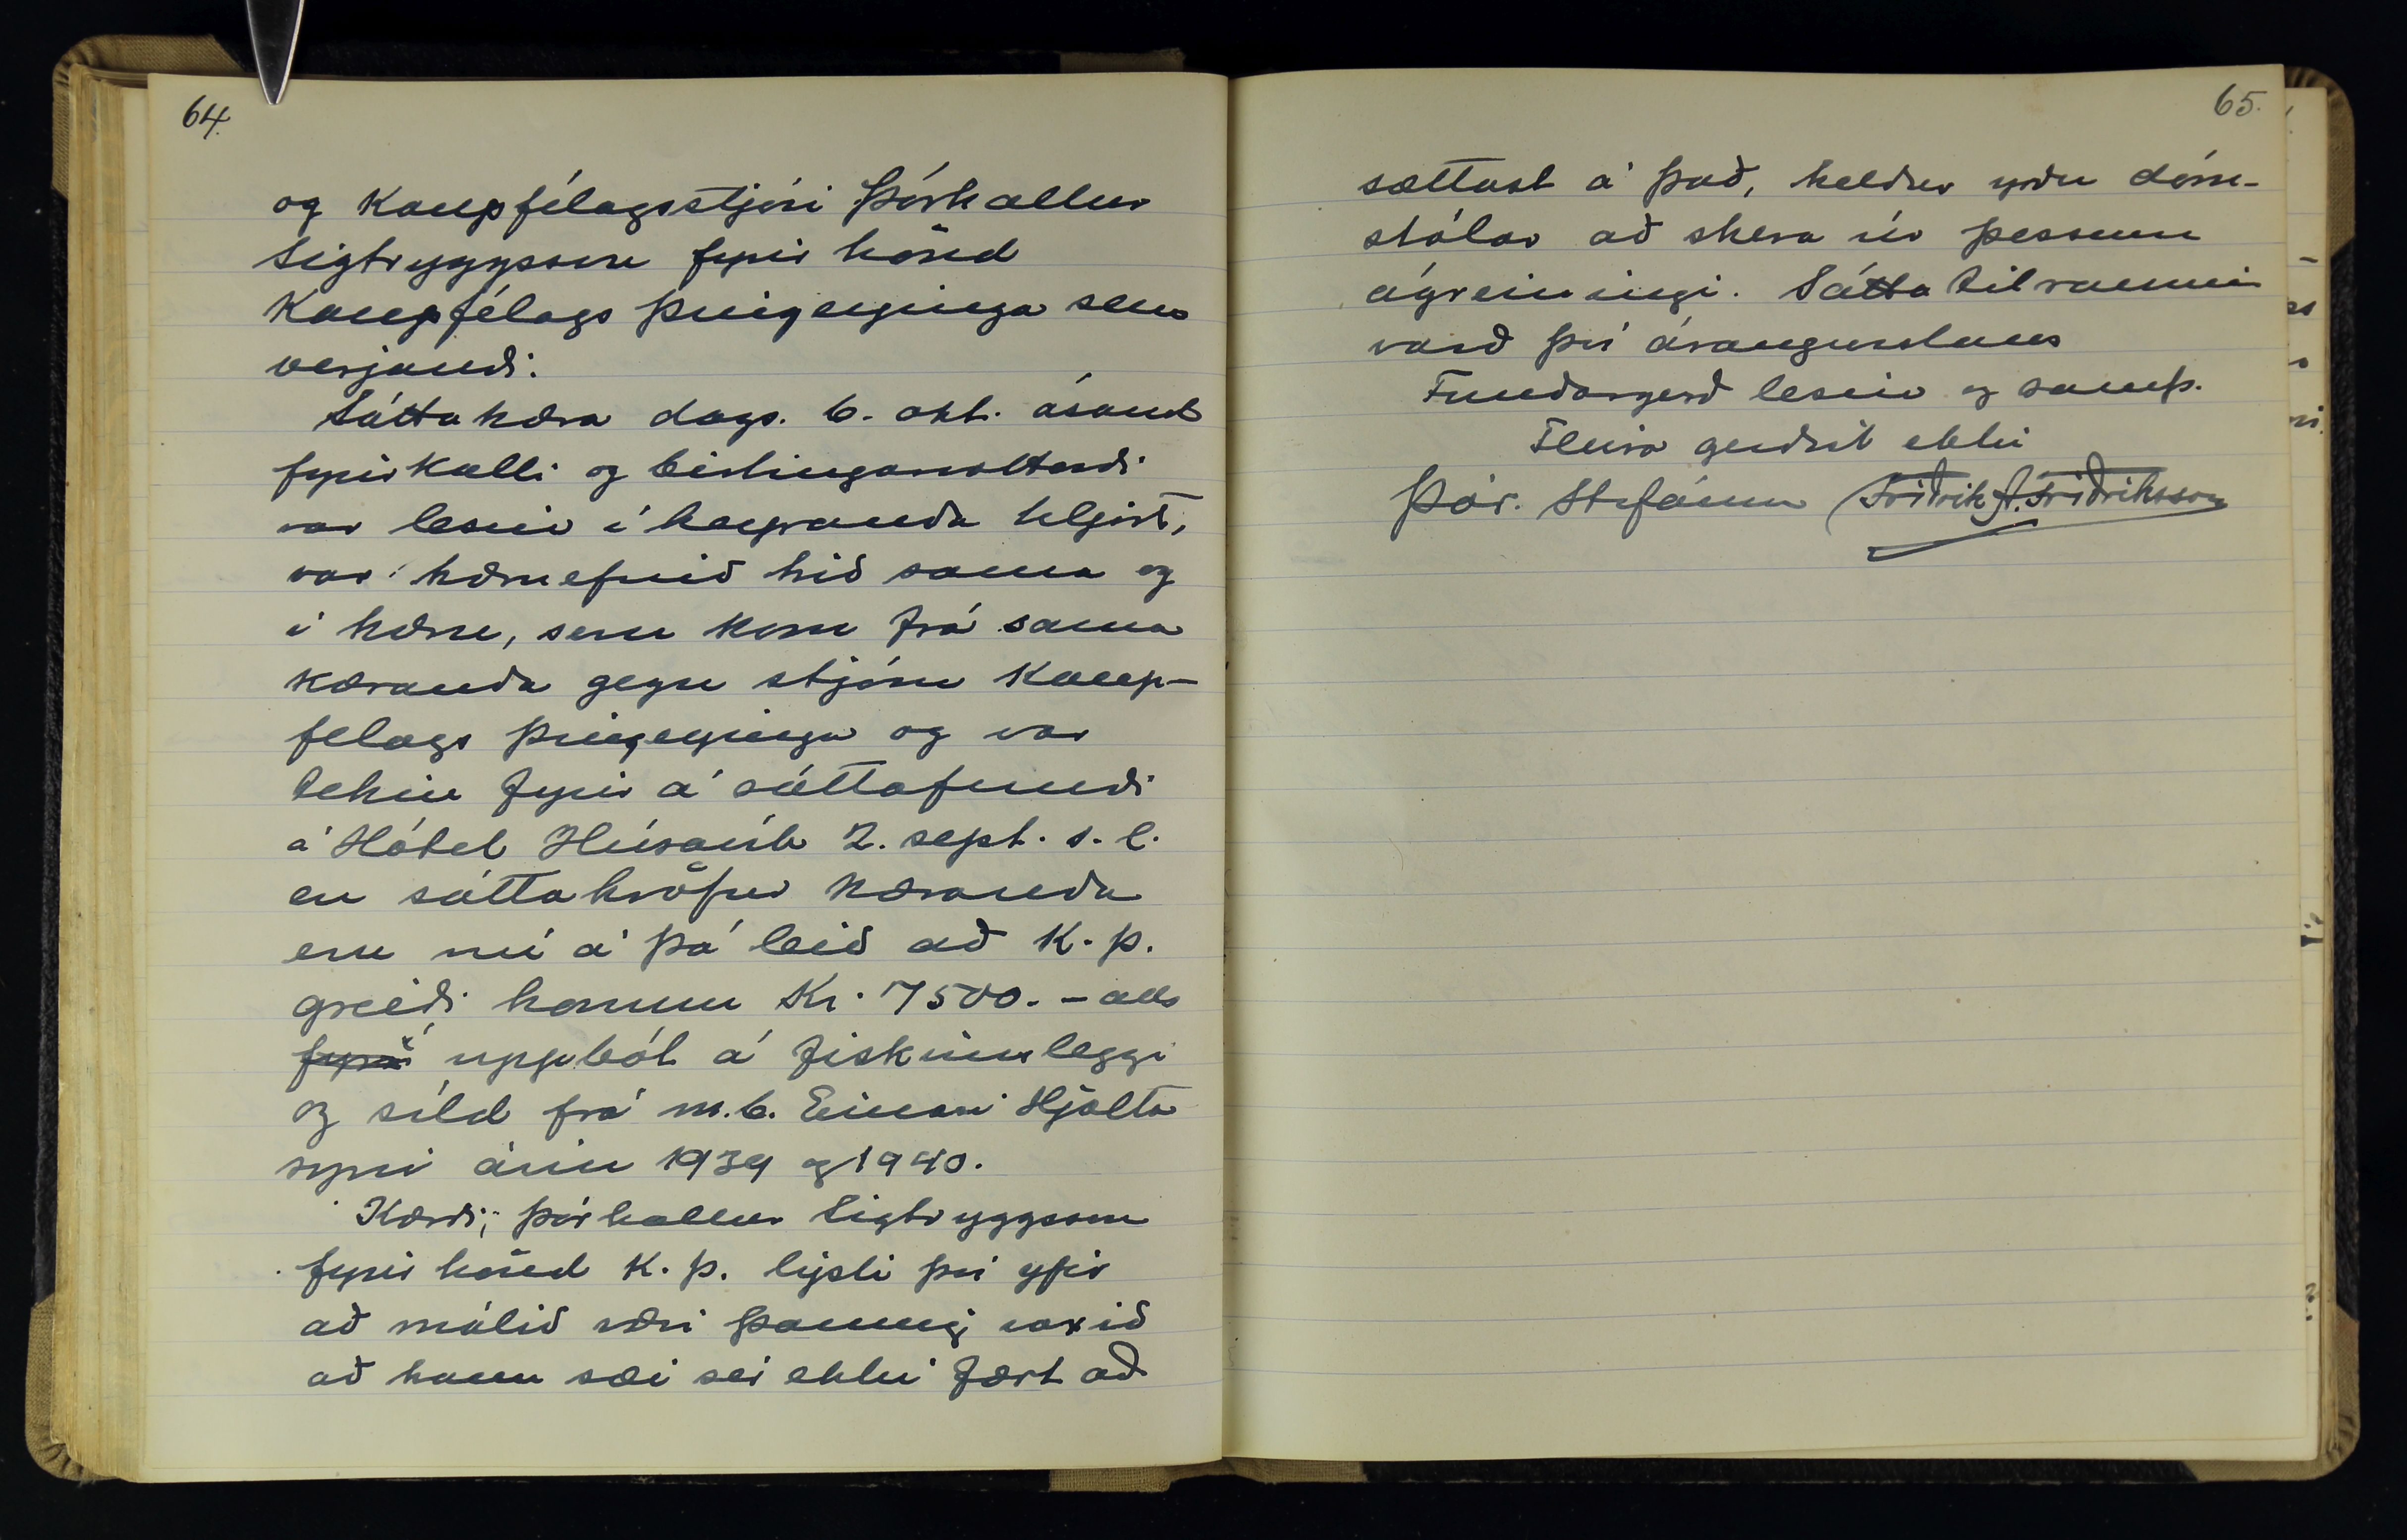 64.
og Kaupfélagsstjóri Þórhallur
Sigtryggsson fyrir hönd
Kaupfélags Þingeyinga sem
verjandi.
Sáttakæra dags. 6. okt. ásamt
fyrirkalli og birtingarvottorði
var lesin í heyranda hljóði,
var kæruefnið hið sama og
í kæru, sem kom frá sama
kæranda gegn stjórn Kaup-
félags Þingeyinga og var
tekin fyrir á sáttafundi
á Hótel Húsavík 2. sept. s.l.
en sáttakröfur kæranda
eru nú á þá leið að K.Þ.
greiði honum Kr. 7500.- alls
fyrir uppbót á fiskinnleggi
og síld frá m.b. Einari Hjalta
syni árin 1939 og 1940.
Kærði, Þórhallur Sigtryggsson
fyrir hönd K.Þ. lýsti því yfir
að málið væri þannig vaxið
að hann sæi sér ekki fært að
65.
sættast á það, heldur yrðu dóm-
stólar að skera úr þessum
ágreiningi. Sáttatilraunin
varð því árangurslaus
Fundargerð lesin og samþ.
Fleira gerðist ekki
Þór. Stefánss Friðrik A. Friðriksson